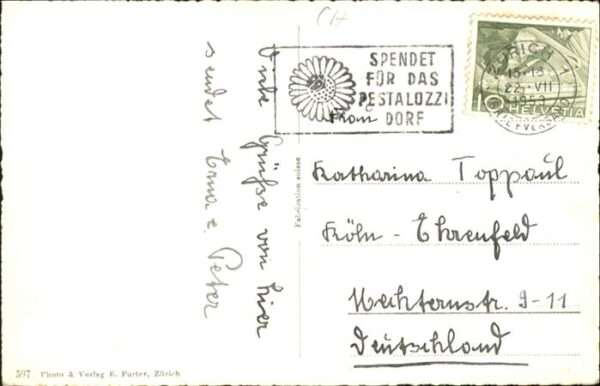 CH
SPENDET
FÜR DAS
PESTALOZZI
DORF
ZÜRICH 1
22. VII
10 HELVETIA
Viele Grüße von hier
sendet Erna u. Peter
Frau
Katharina Toppaul
Köln - Ehrenfeld
Mechternstr. 9-11
Deutschland
Fabrication suisse
597 Photo & Verlag E. Furter, Zürich